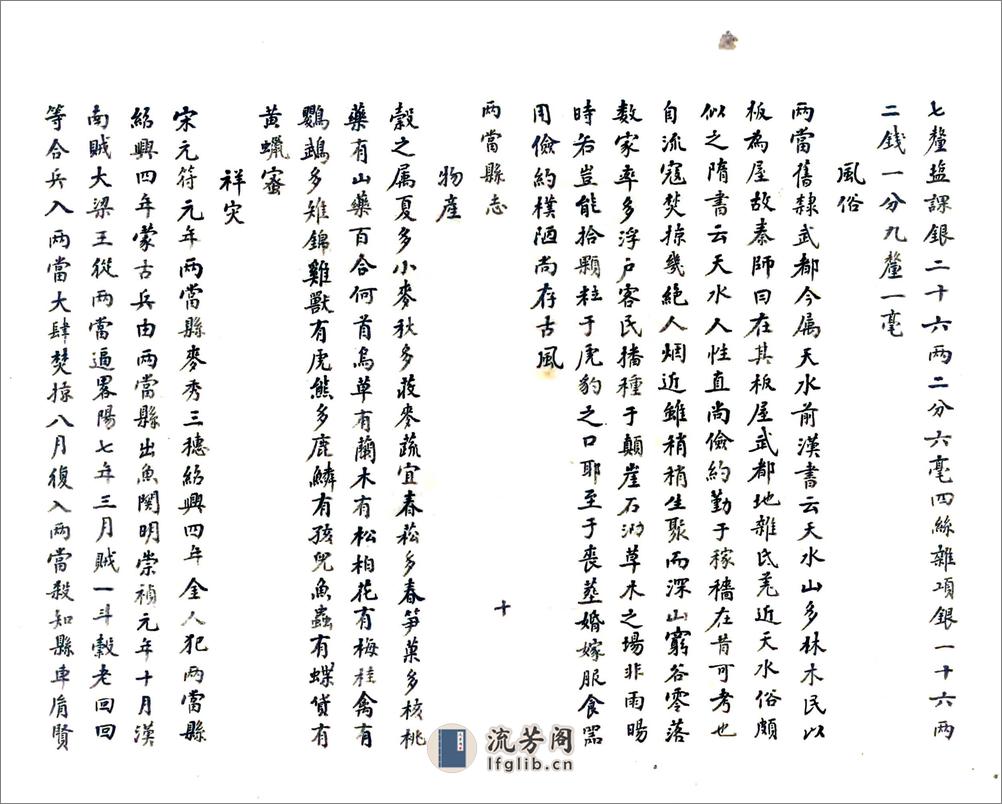 七釐盐課銀二十六两二分六毫四絲雜項銀一十六两
二錢一分九釐一毫
風俗
两當舊隸武都今属天水前漢書云天水山多林木民以
板為屋故秦師曰在其板屋武都地雜氐羌近天水俗頗
似之隋書云天水人性直尚儉約勤于稼穡在昔可考也
自流寇焚掠幾絕人烟近雖稍稍生聚而深山窮谷零落
数家率多浮户客民播種于顛崖石泐草木之場非雨暘
時若豈能拾顆粒于虎豹之口耶至于丧塟婚嫁服食噐
用儉約樸陋尚存古風
两當縣志
十
物産
穀之属夏多小麥秋多荍麥蔬宜春菘多春笋菓多核桃
藥有山藥百合何首烏草有蘭木有松柏花有梅桂禽有
鸚鵡多雉錦雞獸有虎熊多鹿鱗有孩兒魚蟲有蝶貨有
黄蠟蜜
祥灾
宋元符元年两當縣麥秀三穗紹興四年金人犯两當縣
紹興四年蒙古兵由两當縣出魚関明崇禎元年十月漢
南賊大梁王從两當逼畧陽七年三月賊一斗穀老回回
等合兵入两當大肆焚掠八月復入两當殺知縣車脣賢
流芳阁
lfglib.cn